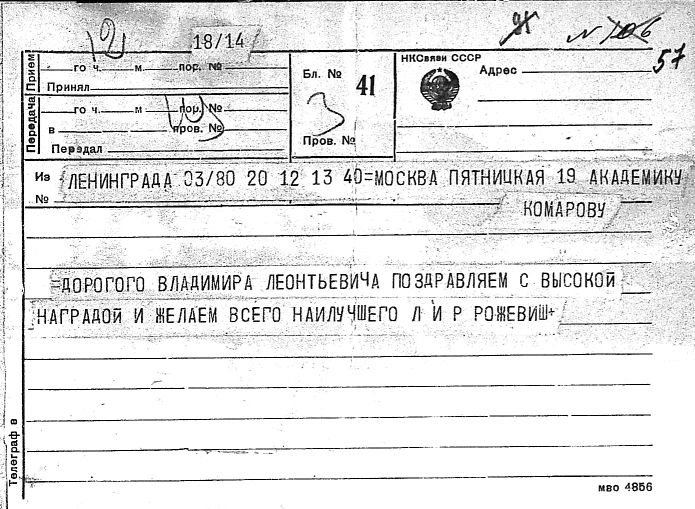 18/14
57
Прием
го ч. м. пор. №
Принял
Передача
го ч. м пор. №
в пров. №
Передал
Бл. № 41
3
Пров. №
НКСвязи СССР
Адрес
Из ЛЕНИНГРАДА 03/80 20 12 13 40=МОСКВА ПЯТНИЦКАЯ 19 АКАДЕМИКУ
№ КОМАРОВУ
=ДОРОГОГО ВЛАДИМИРА ЛЕОНТЬЕВИЧА ПОЗДРАВЛЯЕМ С ВЫСОКОЙ
НАГРАДОЙ И ЖЕЛАЕМ ВСЕГО НАИЛУЧШЕГО Л И Р РОЖЕВИШ+
Телеграф в
мво 4856